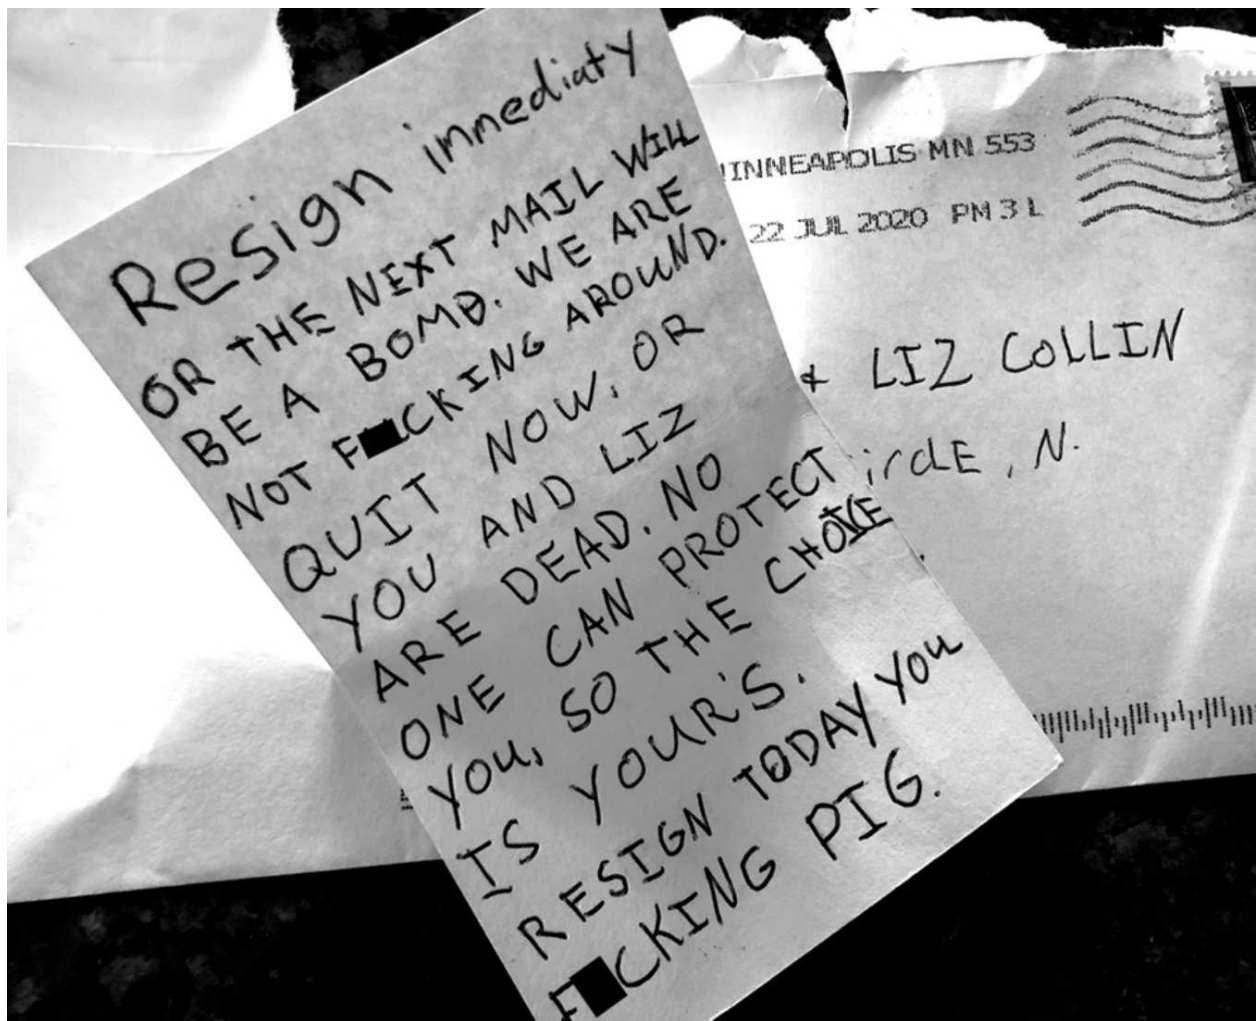 Resign immediaty
OR THE NEXT MAIL WILL
BE A BOMB. WE ARE
NOT F■CKING AROUND.
QUIT NOW, OR
YOU AND LIZ
ARE DEAD. NO
ONE CAN PROTECT
YOU, SO THE CHOICE
IS YOUR'S.
RESIGN TODAY YOU
F■CKING PIG.
INNEAPOLIS MN 553
22 JUL 2020 PM 3 L
& LIZ COLLIN
ircLE, N.